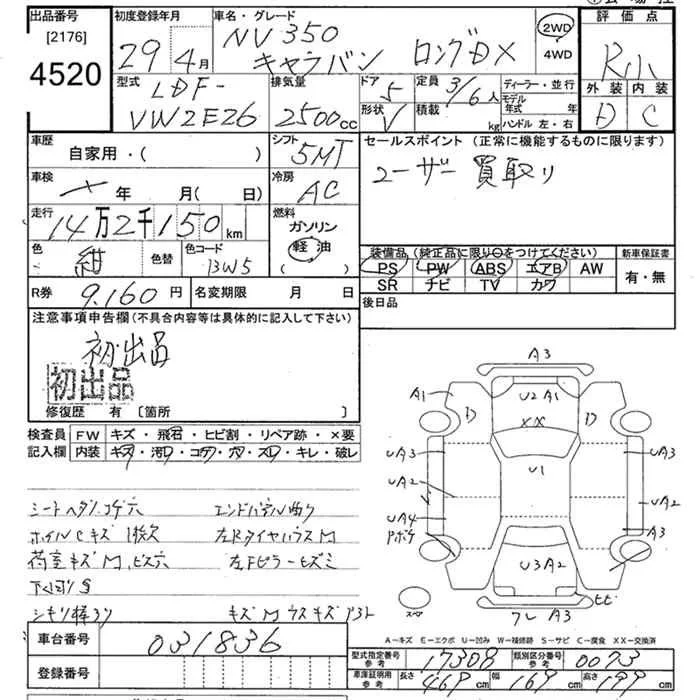 出品番号
[2176]
4520
初度登録年月
29年4月
車名・グレード
NV350
キャラバン ロングDX
2WD
4WD
評価点
R小
外装 内装
D C
型式
LDF-
VW2E26
排気量
2500cc
ドア
5
形状
V
定員
3/6人
積載
kg
ディーラー・並行
モデル年式 年
ハンドル 左・右
車歴
自家用・( )
シフト
5MT
セールスポイント (正常に機能するものに限ります)
ユーザー買取り
車検
年 月( 日)
冷房
AC
走行
14万2千150km
燃料
ガソリン
軽油
( )
色
紺
色替
色コード
BW5
装備品 (純正品に限り○をつけてください)
PS PW ABS エアB AW
SR ナビ TV カワ
新車保証書
有・無
R券 9,160円
名変期限 月 日
後日品
注意事項申告欄 (不具合内容等は具体的に記入して下さい)
初出品
初出品
修復歴 有 〔箇所 〕
検査員 FW キズ・飛石・ヒビ割・リペア跡・×要
記入欄 内装 キズ・汚レ・コゲ・穴・スレ・キレ・破レ
A3
A1
D
U2 A1
XX
D
UA3
UA2
U1
UA3
UA2
UA4
A3
U3A2
スペア
フレ A3
エンドパネル曲り
ホイルCキズ
左RタイヤハウスM
荷室キズM、ビス穴
左Fピラーヒズミ
下回りS
A-キズ E-エクボ U-凹み W-補修跡 S-サビ C-腐食 XX-交換済
車台番号 031836
登録番号
型式指定番号 参考 17308
類別区分番号 参考 0073
車庫証明用 参考 長さ 469cm 幅 169cm 高さ 199cm